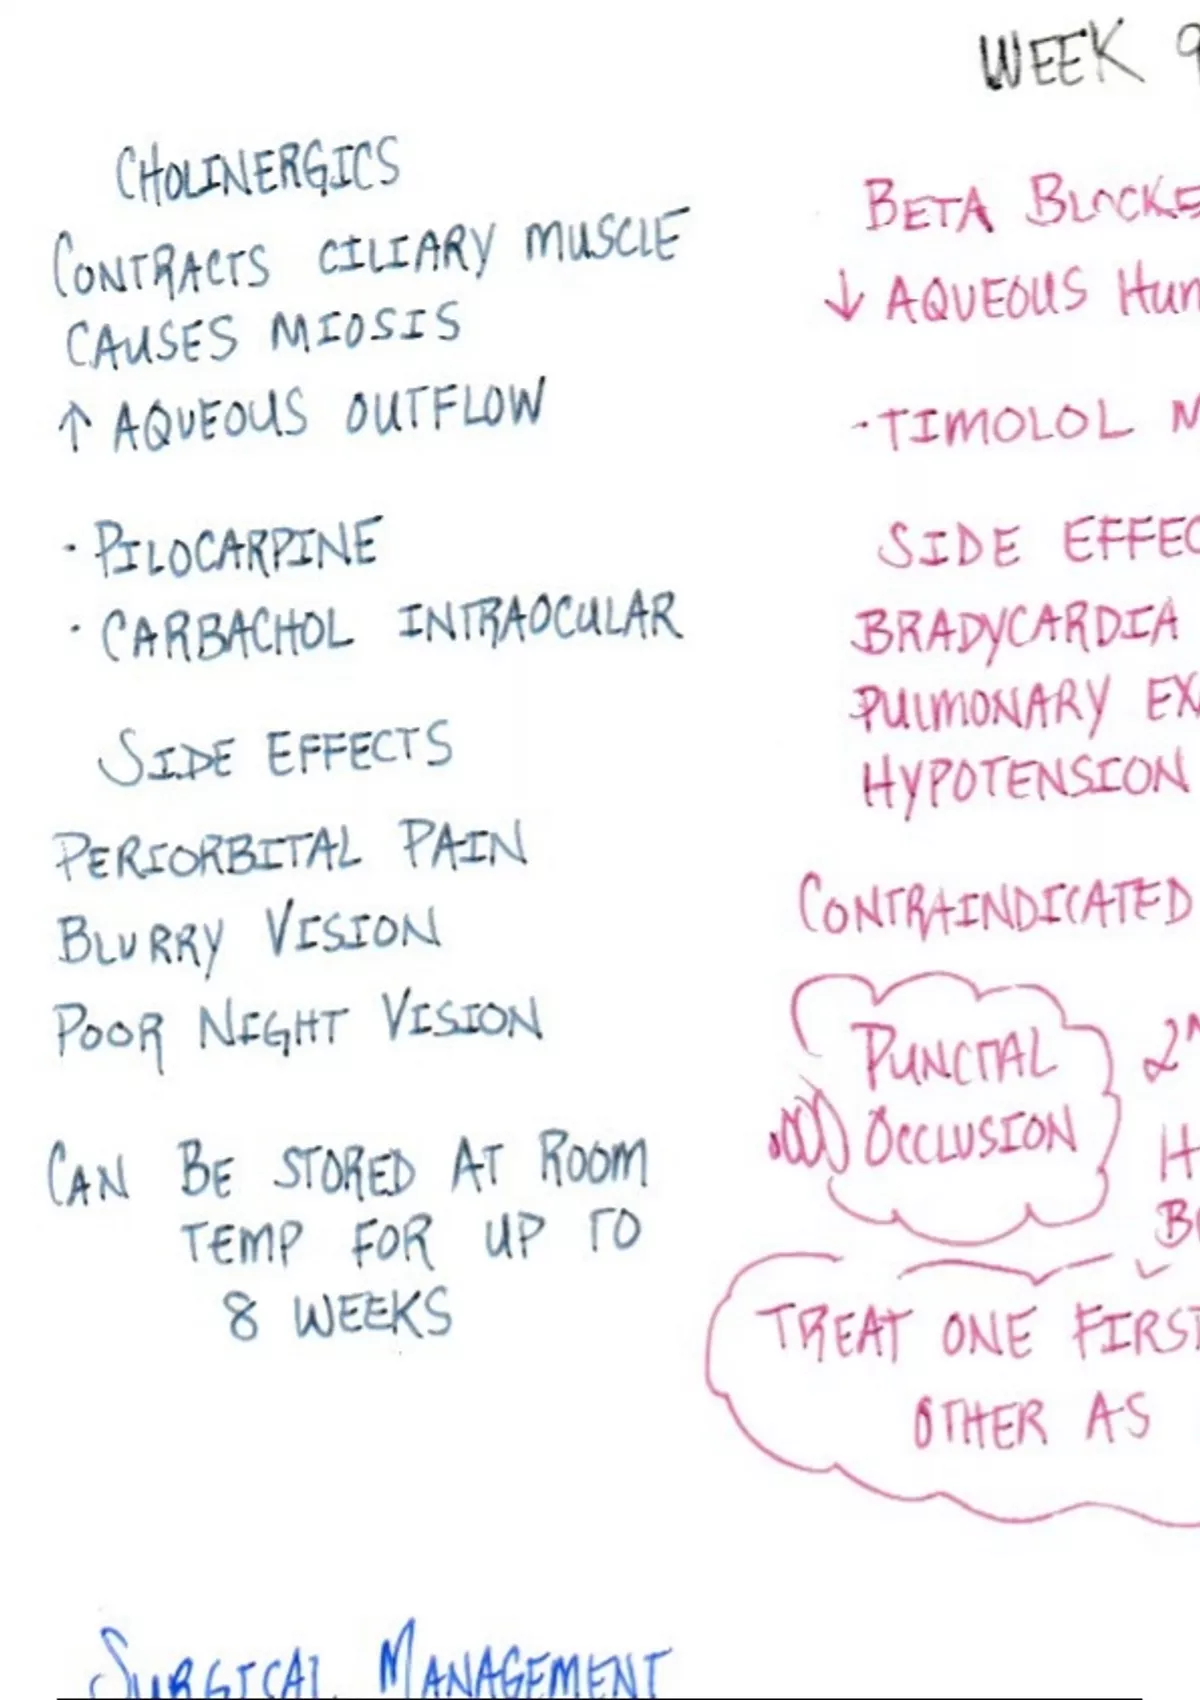 WEEK 9
CHOLINERGICS
CONTRACTS CILIARY MUSCLE
CAUSES MIOSIS
↑ AQUEOUS OUTFLOW
· PILOCARPINE
· CARBACHOL INTRAOCULAR
SIDE EFFECTS
PERIORBITAL PAIN
BLURRY VISION
POOR NIGHT VISION
CAN BE STORED AT ROOM
TEMP FOR UP TO
8 WEEKS
BETA BLOCKE
↓ AQUEOUS HUM
· TIMOLOL M
SIDE EFFEC
BRADYCARDIA
PULMONARY EX
HYPOTENSION
CONTRAINDICATED
PUNCTAL
OCCLUSION
2
H
B
TREAT ONE FIRST
OTHER AS
SURGICAL MANAGEMENT